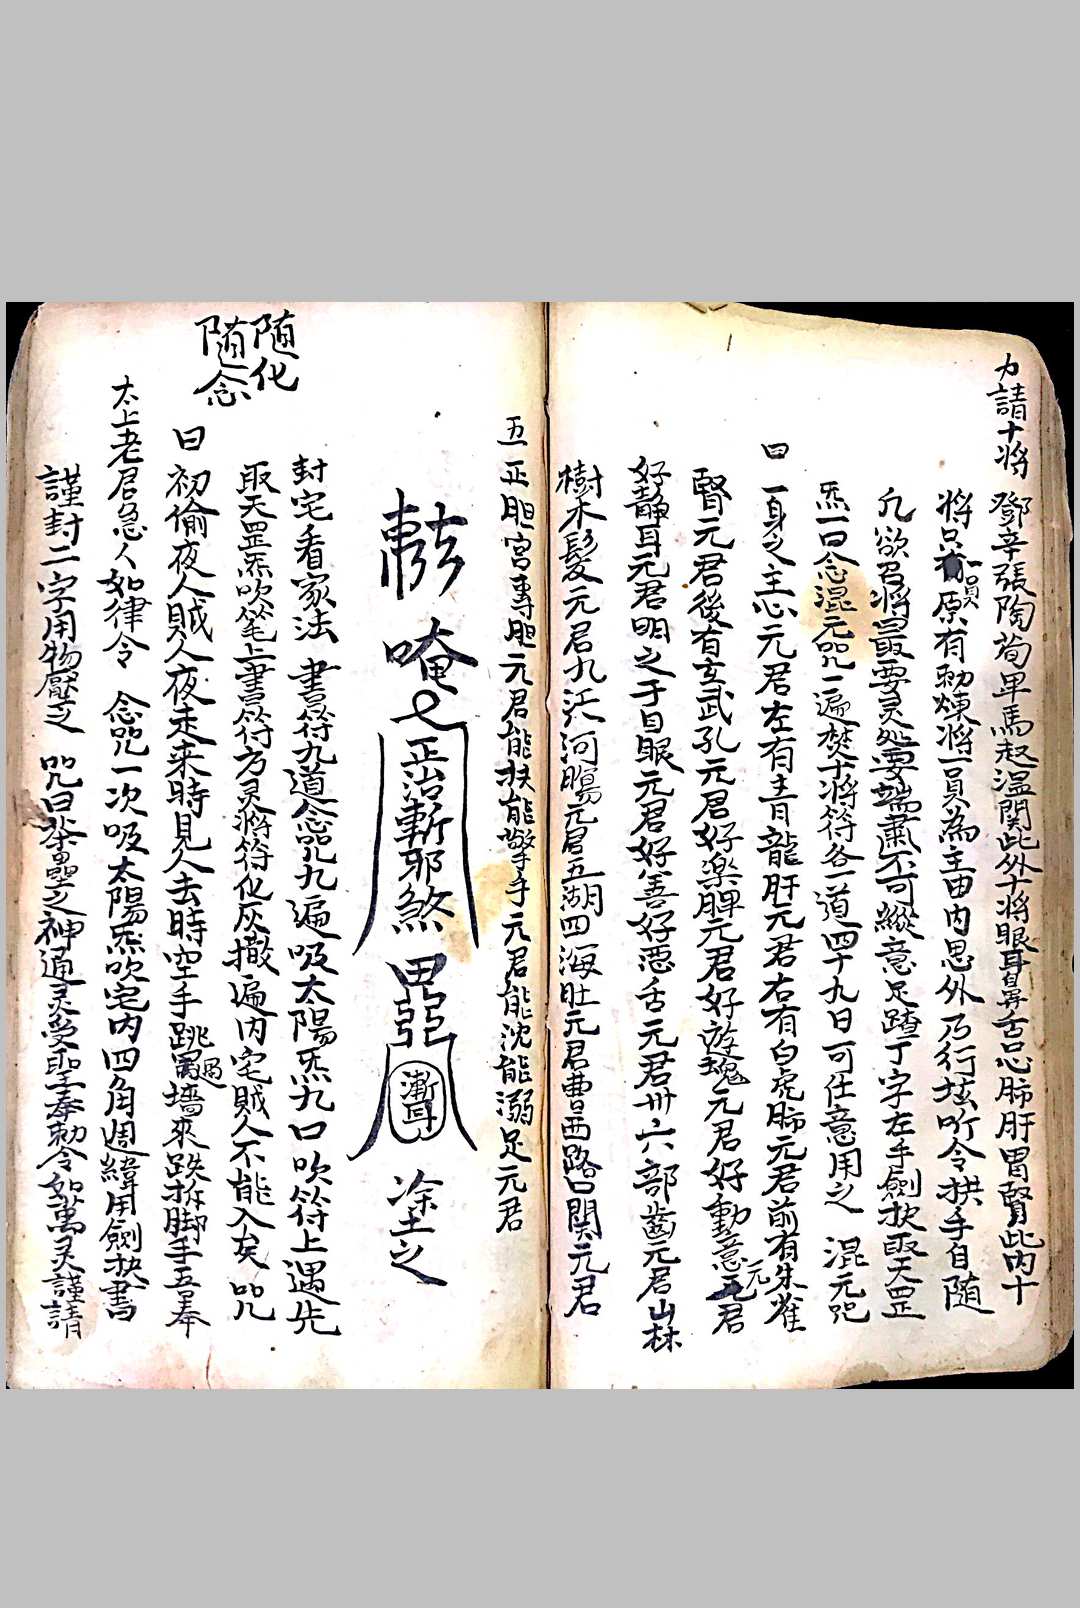 力請十将 鄧辛張陶荀畢馬趙温関此外十将眼耳鼻舌口心肺肝胃腎此内十
将只原有勅煉将一員為主由内思外乃行壇所令拱手自随
員
凢欲召将最要灵処要端肅不可縱意足踏丁字左手劍抉取天罡
炁一口念混元咒一遍焚十将符各一道四十九日可任意用之 混元咒
曰 一身之主心元君左有青龍肝元君右有白虎肺元君前有朱雀
腎元君後有玄武孔元君好楽脾元君好遊魂元君好動意元君
好静耳元君明之于目眼元君好善好悪舌元君卅六部齒元君山林
樹木髮元君九江河腸元君五湖四海肚元君曹西路口関元君
五 正胆宮專胆元君能扶能擎手元君能沈能溺足元君
唵 正治斬邪煞 塗之
封宅看家法 書符九道念咒九遍吸太陽炁九口吹符上遇先
取天罡炁吹筆上書符方灵將符化灰撒遍内宅賊人不能入矣 咒
随化
随念
曰 初偷夜人賊久人夜走来時見人去時空手跳過墻來跌折脚手五奉
太上老君急人如律令 念咒一次吸太陽炁吹宅内四角週緯用劍抉書
謹封二字用物壓之 咒曰荼壘之神通灵受聖奉勅令如萬灵謹請